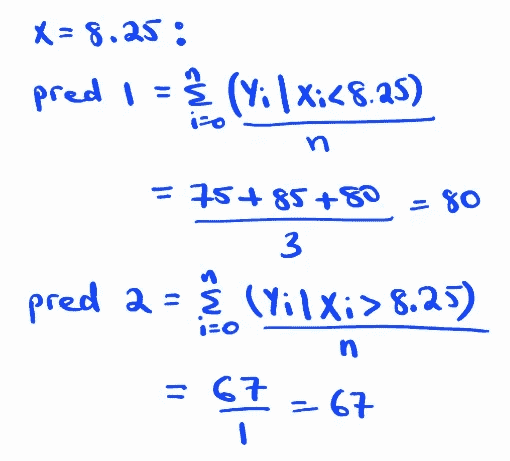 x = 8.25 :
pred 1 = n Σ i=0 (Yi | Xi < 8.25) / n
= 75 + 85 + 80 / 3 = 80
pred 2 = n Σ i=0 (Yi | Xi > 8.25) / n
= 67 / 1 = 67